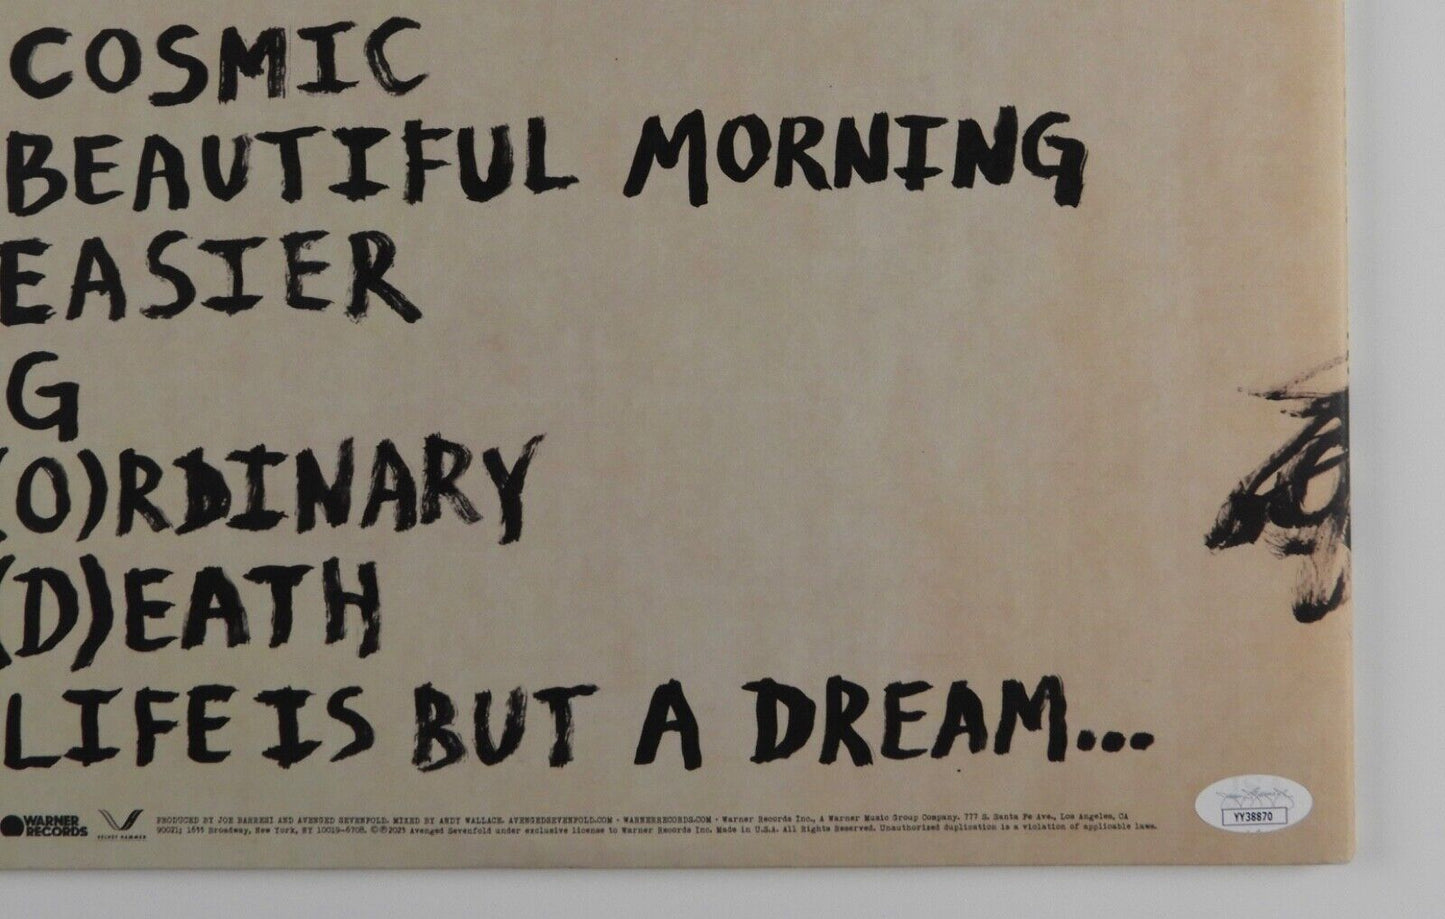 COSMIC
BEAUTIFUL MORNING
EASIER
G
(O)RDINARY
(D)EATH
LIFE IS BUT A DREAM...
WARNER RECORDS
HELMET HAMMER
PRODUCED BY JOE BARRESI AND AVENGED SEVENFOLD. MIXED BY ANDY WALLACE. AVENGEDSEVENFOLD.COM • WARNERRECORDS.COM • Warner Records Inc., A Warner Music Group Company. 777 S. Santa Fe Ave., Los Angeles, CA
90021; 1633 Broadway, New York, NY 10019-6708. ©℗2023 Avenged Sevenfold under exclusive license to Warner Records Inc. Made in U.S.A. All Rights Reserved. Unauthorized duplication is a violation of applicable laws.
YY38870